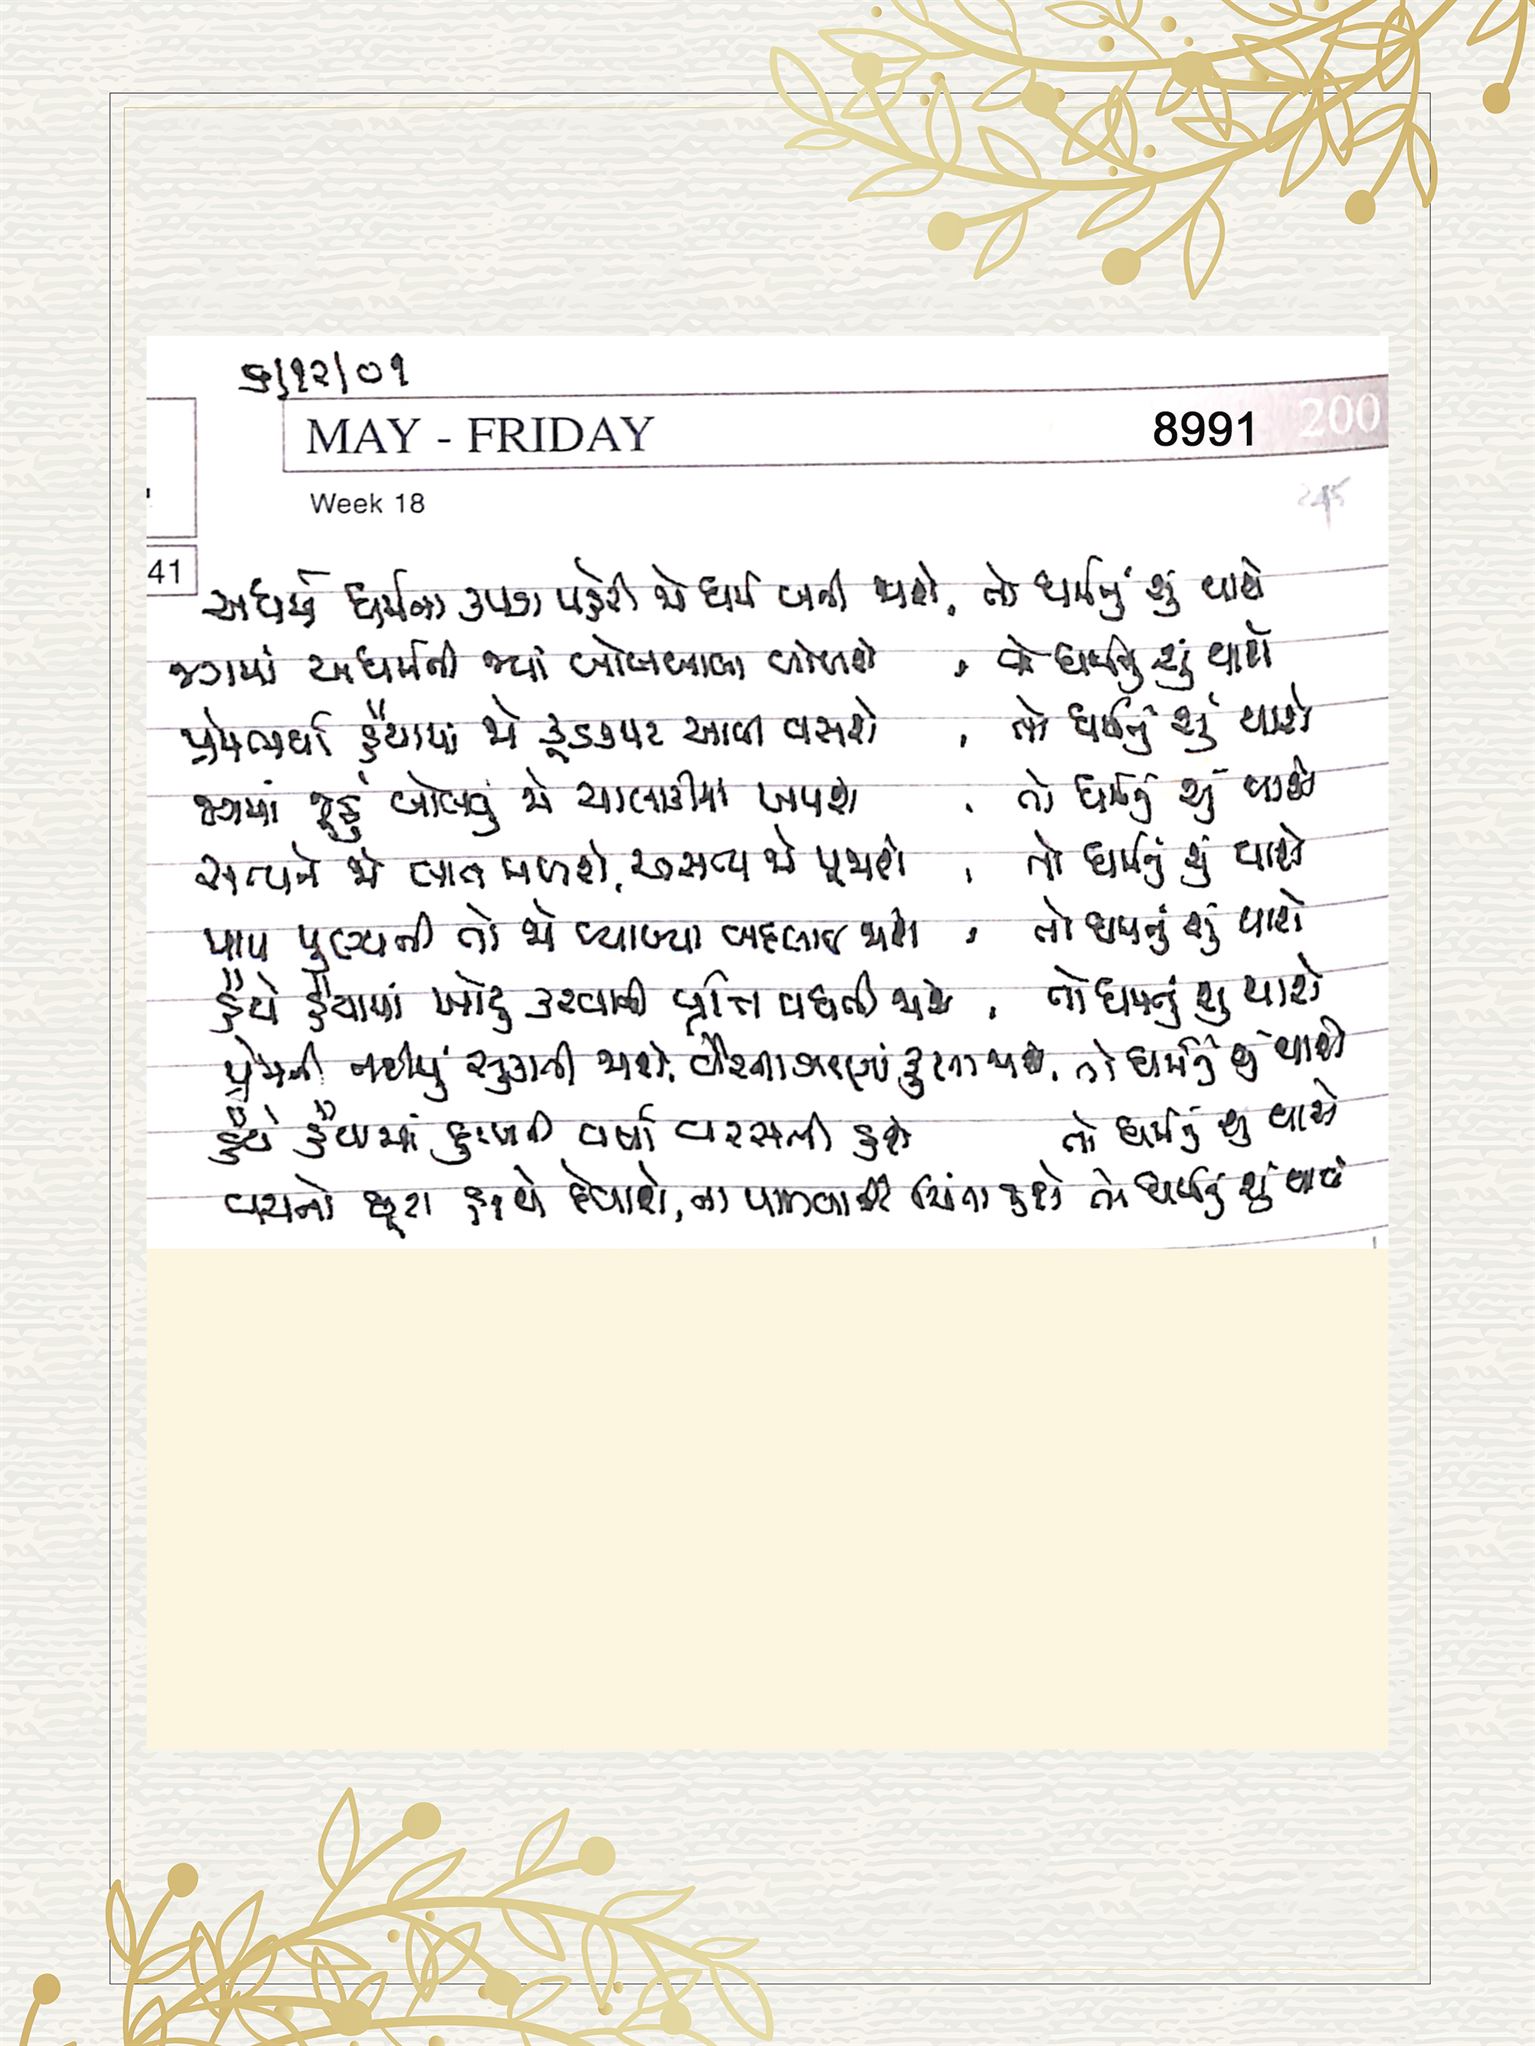 ૬/૧૨/૦૧
MAY - FRIDAY 8991 200
Week 18
41
અધર્મ ધર્મના કપડા પહેરી જો ધર્મ બની જાશે, તો ધર્મનું શું થાશે
જગમાં અધર્મની જ્યાં બોલબાલા બોલાશે , તો ધર્મનું શું થાશે
પ્રેમભર્યા હૈયામાં જો કૂડકપટ આવી વસશે , તો ધર્મનું શું થાશે
જગમાં જૂઠું બોલવું જો ચાલાકીમાં ખપશે , તો ધર્મનું શું થાશે
સત્યને જો લાત મળશે, અસત્ય જો પૂજાશે , તો ધર્મનું શું થાશે
પાપ પુણ્યની તો જો વ્યાખ્યા બદલાઈ જાશે , તો ધર્મનું શું થાશે
હૈયે હૈયામાં ખોટુ કરવાની વૃત્તિ વધતી જાશે , તો ધર્મનું શુ થાશે
પ્રેમની નદીયું સુકાતી જાશે, વૈરના ઝરણાં ફુટતા જાશે, તો ધર્મનું શું થાશે
હૈયે હૈયામાં દુઃખની વર્ષા વરસતી હશે તો ધર્મનું શું થાશે
વચનો છૂટા હાથે દેવાશે, ના પાળવાની ચિંતા હશે તો ધર્મનું શું થાશે